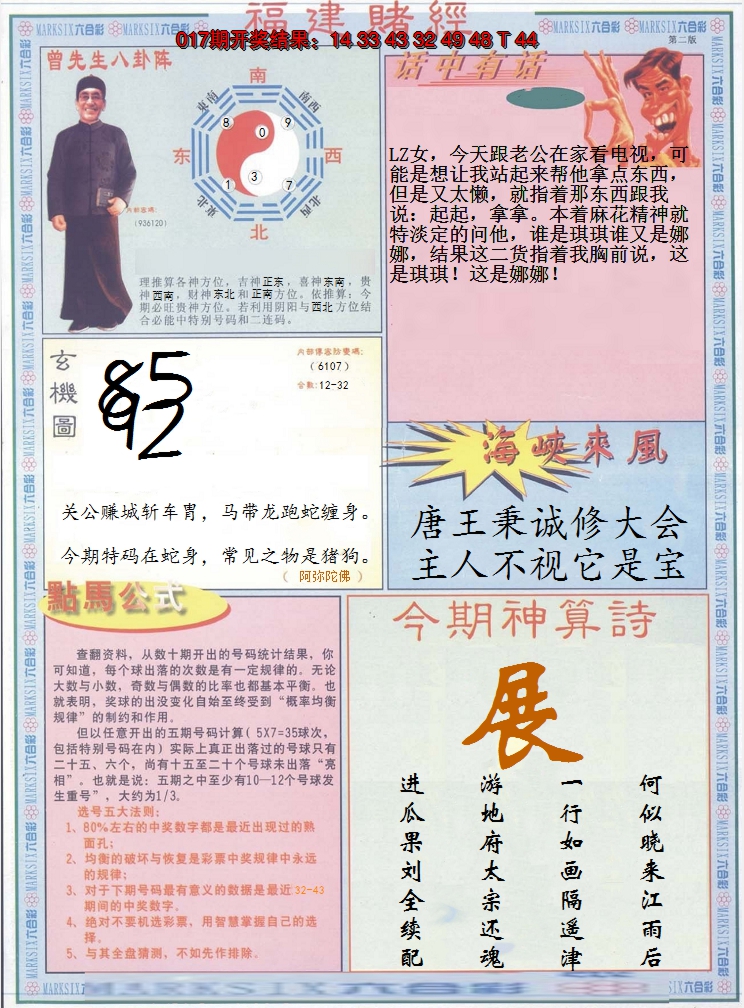 福建賭經
017期开奖结果：14 33 43 32 49 48 T 44
第二版
MARKSIX六合彩
曾先生八卦阵
南
东南
西南
东
西
东北
西北
北
8
0
9
1
3
7
内部密碼：
（936120）
理推算各神方位，吉神正东，喜神东南，贵
神西南，财神东北和正南方位。依推算：今
期必旺贵神方位。若利用阴阳与西北方位结
合必能中特别号码和二连码。
话中有话
LZ女，今天跟老公在家看电视，可
能是想让我站起来帮他拿点东西，
但是又太懒，就指着那东西跟我
说：起起，拿拿。本着麻花精神就
特淡定的问他，谁是琪琪谁又是娜
娜，结果这二货指着我胸前说，这
是琪琪！这是娜娜！
玄機圖
85
92
（6107）
合数:12-32
关公赚城斩车胄，马带龙跑蛇缠身。
今期特码在蛇身，常见之物是猪狗。
（ 阿弥陀佛 ）
海峽來風
唐王秉诚修大会
主人不视它是宝
點馬公式
查翻资料，从数十期开出的号码统计结果，你
可知道，每个球出落的次数是有一定规律的。无论
大数与小数，奇数与偶数的比率也都基本平衡。也
就表明，奖球的出没变化自始至终受到“概率均衡
规律”的制约和作用。
但以任意开出的五期号码计算( 5X7=35球次，
包括特别号码在内) 实际上真正出落过的号球只有
二十五、六个，尚有十五至二十个号球未出落“亮
相”。也就是说：五期之中至少有10—12个号球发
生重号”，大约为1/3。
选号五大法则：
1、80%左右的中奖数字都是最近出现过的熟
面孔；
2、均衡的破坏与恢复是彩票中奖规律中永远
的规律；
3、对于下期号码最有意义的数据是最近32-43
期间的中奖数字。
4、绝对不要机选彩票，用智慧掌握自己的选
择。
5、与其全盘猜测，不如先作排除。
今期神算詩
展
何似晓来江雨后
一行如画隔遥津
游地府太宗还魂
进瓜果刘全续配